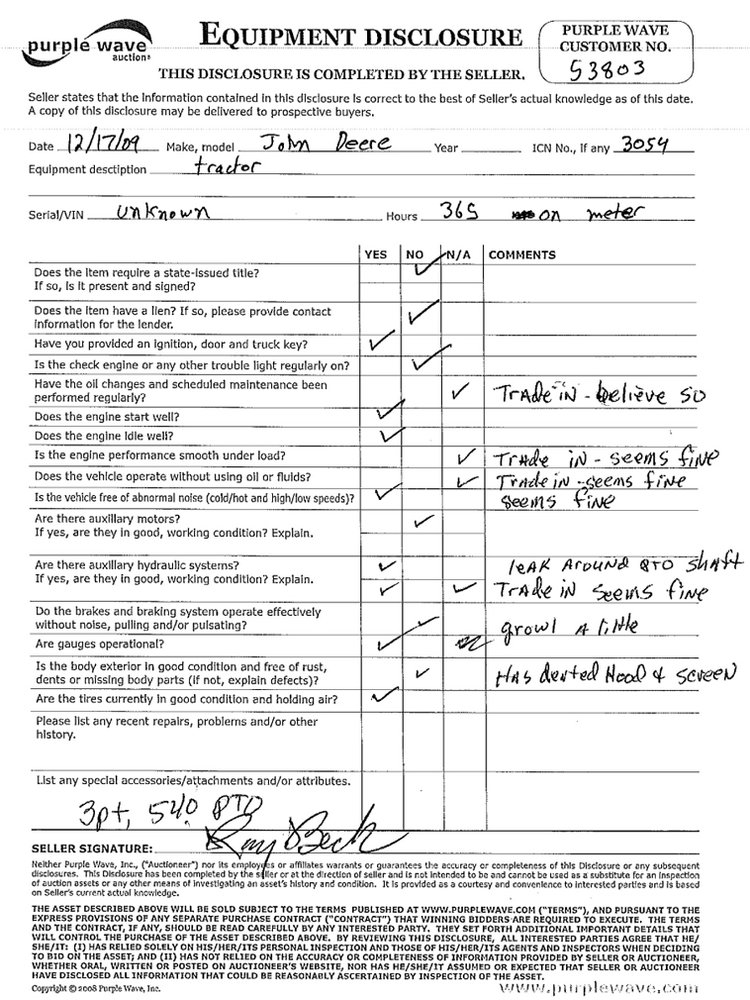 purple wave
auction®
EQUIPMENT DISCLOSURE
PURPLE WAVE
CUSTOMER NO.
53803
THIS DISCLOSURE IS COMPLETED BY THE SELLER.
Seller states that the information contained in this disclosure is correct to the best of Seller's actual knowledge as of this date.
A copy of this disclosure may be delivered to prospective buyers.
Date 12/17/09 Make, model John Deere Year ICN No., if any 3054
Equipment desctiption tractor
Serial/VIN unknown Hours 365 on meter
YES NO N/A COMMENTS
Does the item require a state-issued title? ✓
If so, is it present and signed?
Does the item have a lien? If so, please provide contact ✓
information for the lender.
Have you provided an ignition, door and truck key? ✓
Is the check engine or any other trouble light regularly on? ✓
Have the oil changes and scheduled maintenance been
performed regularly? ✓ Trade in - believe so
Does the engine start well? ✓
Does the engine idle well? ✓
Is the engine performance smooth under load? ✓ Trade in - seems fine
Does the vehicle operate without using oil or fluids? ✓ Trade in - seems fine
Is the vehicle free of abnormal noise (cold/hot and high/low speeds)? ✓ seems fine
Are there auxillary motors? ✓
If yes, are they in good, working condition? Explain.
Are there auxillary hydraulic systems? ✓ leak around PTO shaft
If yes, are they in good, working condition? Explain. ✓ ✓ Trade in seems fine
Do the brakes and braking system operate effectively
without noise, pulling and/or pulsating? ✓ growl a little
Are gauges operational? ✓
Is the body exterior in good condition and free of rust,
dents or missing body parts (if not, explain defects)? ✓ Has dented Hood & screen
Are the tires currently in good condition and holding air? ✓
Please list any recent repairs, problems and/or other
history.
List any special accessories/attachments and/or attributes.
3pt, 540 PTO
SELLER SIGNATURE: Ray Beck
Neither Purple Wave, Inc., ("Auctioneer") nor its employees or affiliates warrants or guarantees the accuracy or completeness of this Disclosure or any subsequent
disclosures. This Disclosure has been completed by the seller or at the direction of seller and is not intended to be and cannot be used as a substitute for an inspection
of auction assets or any other means of investigating an asset's history and condition. It is provided as a courtesy and convenience to interested parties and is based
on Seller's current actual knowledge.
THE ASSET DESCRIBED ABOVE WILL BE SOLD SUBJECT TO THE TERMS PUBLISHED AT WWW.PURPLEWAVE.COM ("TERMS"), AND PURSUANT TO THE
EXPRESS PROVISIONS OF ANY SEPARATE PURCHASE CONTRACT ("CONTRACT") THAT WINNING BIDDERS ARE REQUIRED TO EXECUTE. THE TERMS
AND THE CONTRACT, IF ANY, SHOULD BE READ CAREFULLY BY ANY INTERESTED PARTY. THEY SET FORTH ADDITIONAL IMPORTANT DETAILS THAT
WILL CONTROL THE PURCHASE OF THE ASSET DESCRIBED ABOVE. BY REVIEWING THIS DISCLOSURE, ALL INTERESTED PARTIES AGREE THAT HE/
SHE/IT: (I) HAS RELIED SOLELY ON HIS/HER/ITS PERSONAL INSPECTION AND THOSE OF HIS/HER/ITS AGENTS AND INSPECTORS WHEN DECIDING
TO BID ON THE ASSET; AND (II) HAS NOT RELIED ON THE ACCURACY OR COMPLETENESS OF INFORMATION PROVIDED BY SELLER OR AUCTIONEER,
WHETHER ORAL, WRITTEN OR POSTED ON AUCTIONEER'S WEBSITE, NOR HAS HE/SHE/IT ASSUMED OR EXPECTED THAT SELLER OR AUCTIONEER
HAVE DISCLOSED ALL INFORMATION THAT COULD BE REASONABLY ASCERTAINED BY INSPECTION OF THE ASSET.
Copyright © 2008 Purple Wave, Inc.
www.purplewave.com